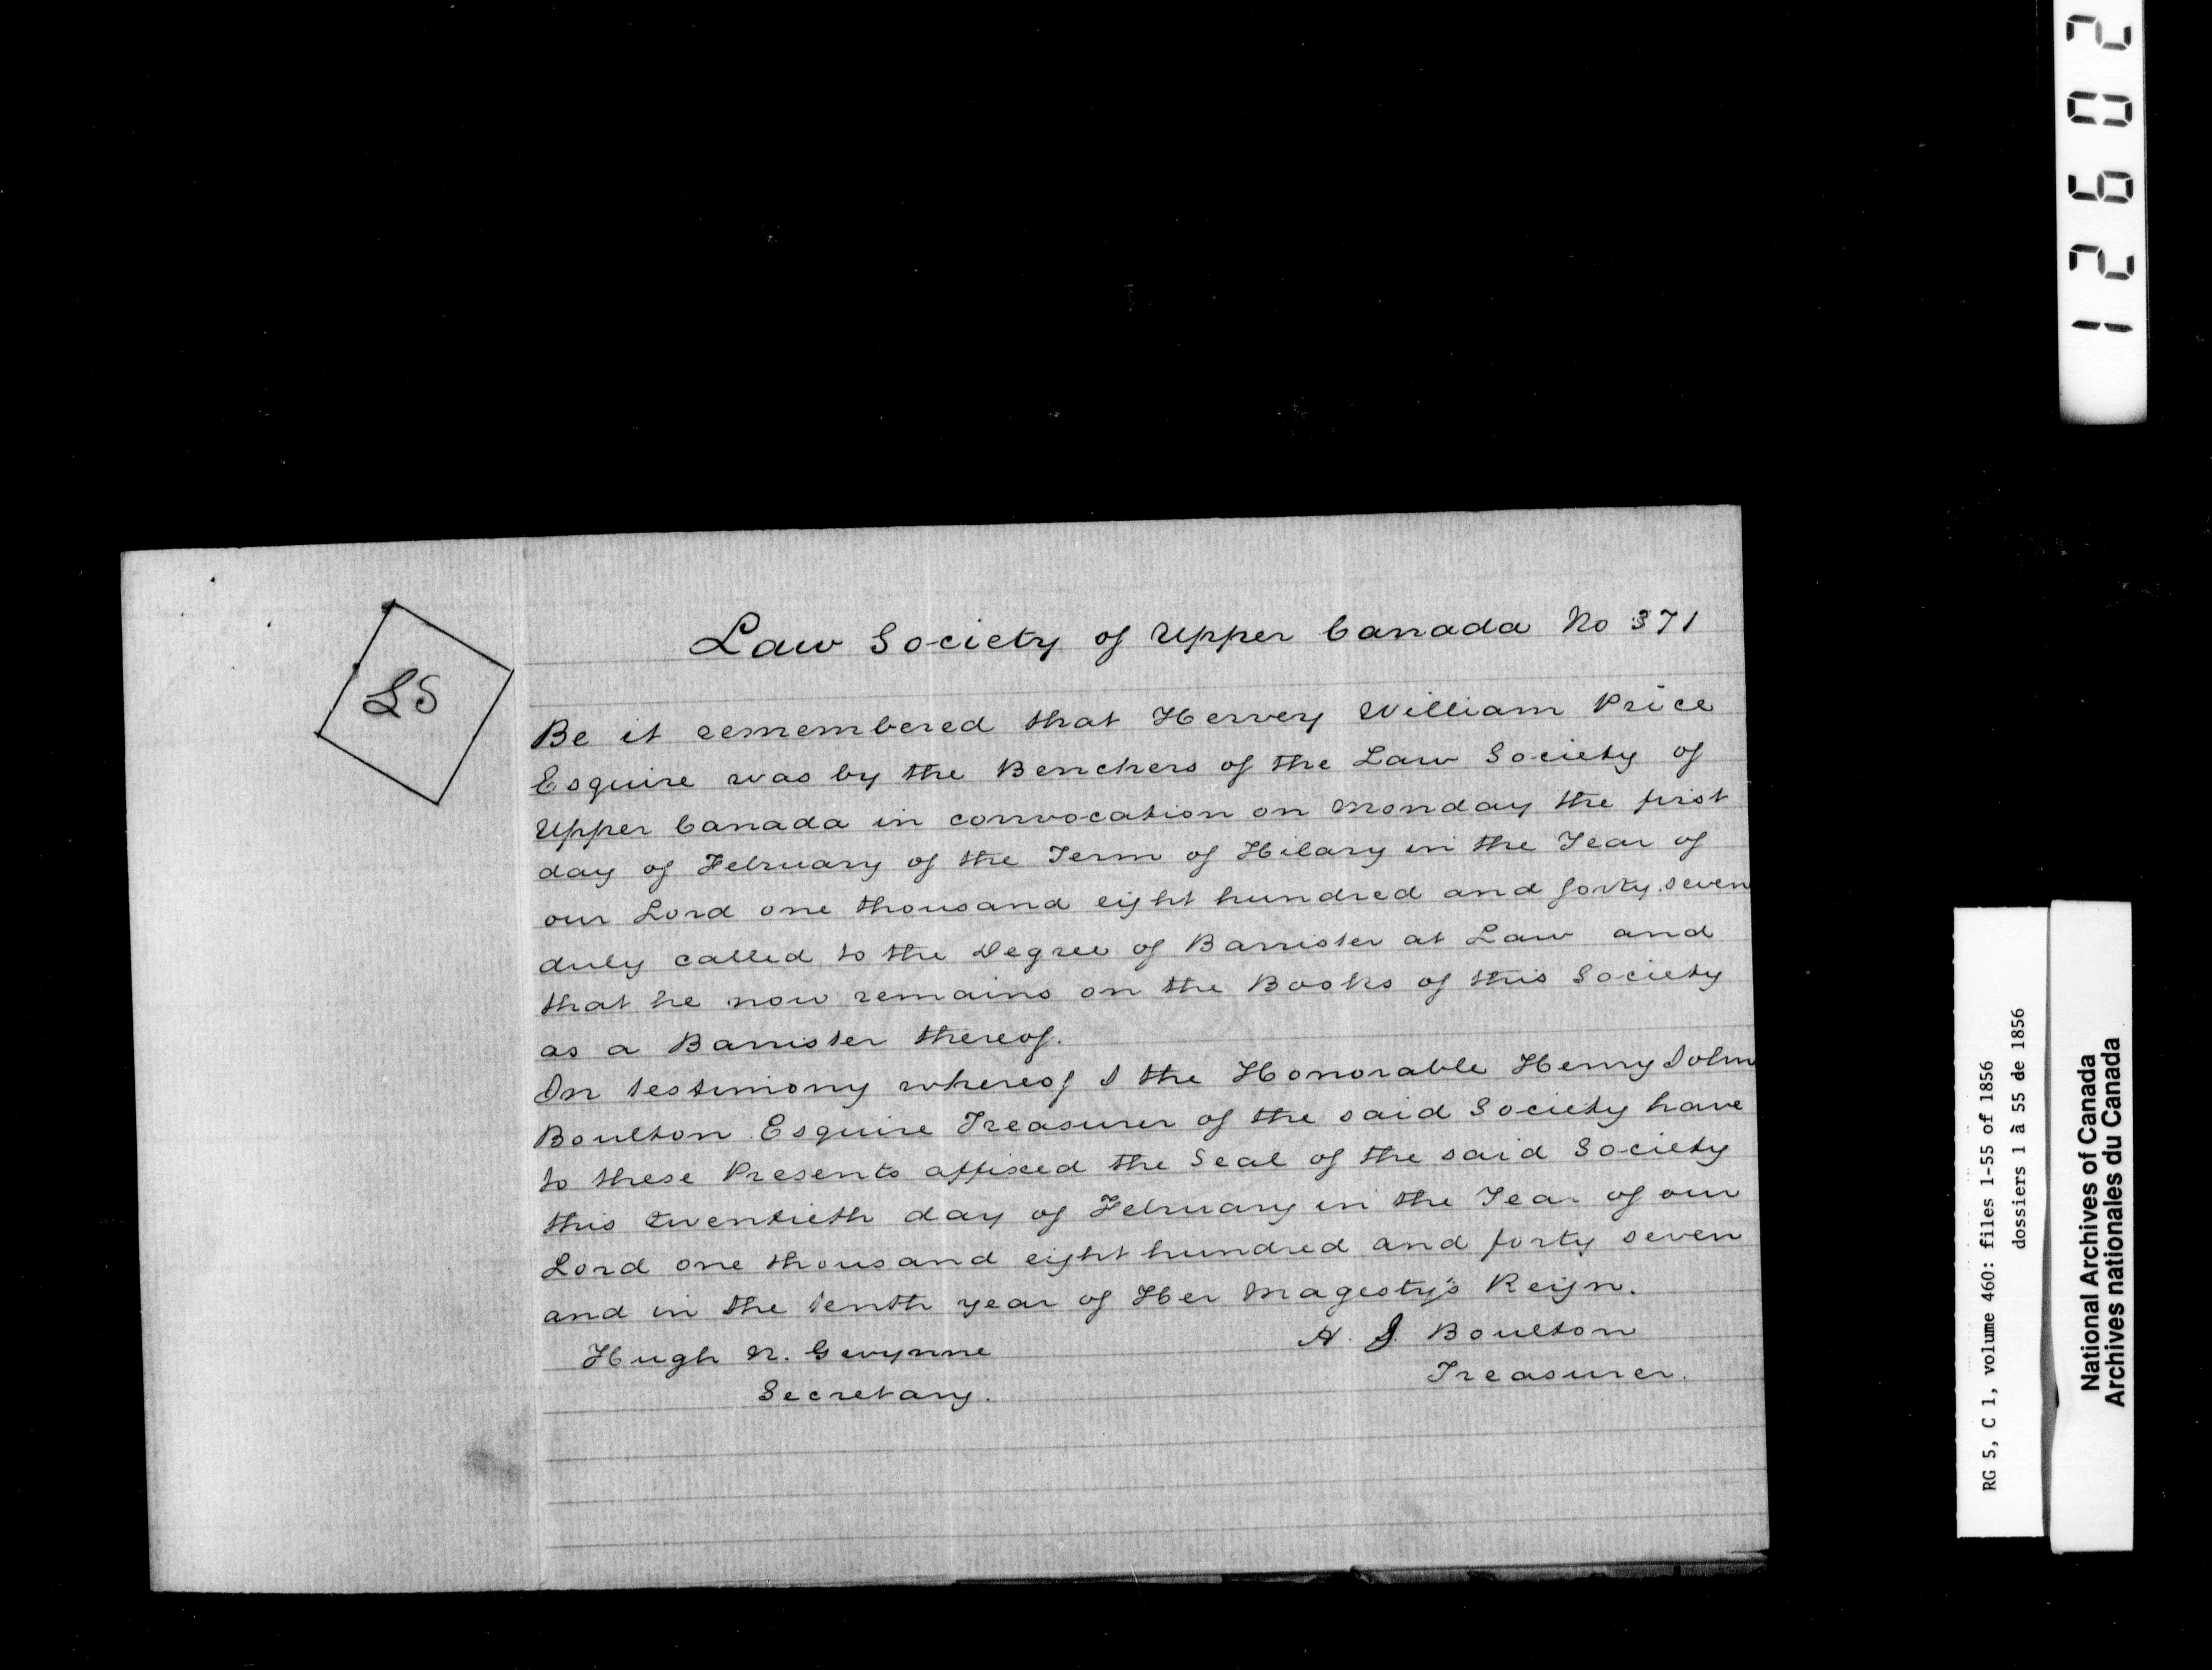 Law Society of Upper Canada No 371
LS
Be it remembered that Hervey William Price
Esquire was by the Benchers of the Law Society of
Upper Canada in convocation on Monday the first
day of February of the Term of Hilary in the Year of
our Lord one thousand eight hundred and forty seven
duly called to the Degree of Barrister at Law and
that he now remains on the Books of this Society
as a Barrister thereof.
In testimony whereof I the Honorable Henry John
Boulton Esquire Treasurer of the said Society have
to these Presents affixed the Seal of the said Society
this twentieth day of February in the Year of our
Lord one thousand eight hundred and forty seven
and in the tenth year of Her Magesty's Reign.
Hugh N. Gwynne
Secretary.
H. J. Boulton
Treasurer.
12602
RG 5, C 1, volume 460: files 1-55 of 1856
dossiers 1 à 55 de 1856
National Archives of Canada
Archives nationales du Canada